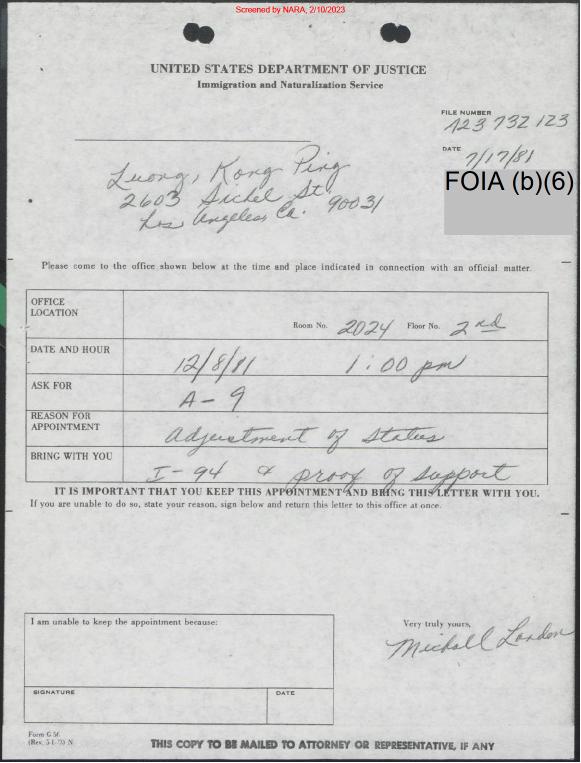 Screened by NARA, 2/10/2023
UNITED STATES DEPARTMENT OF JUSTICE
Immigration and Naturalization Service
FILE NUMBER
A23 732 123
DATE
7/17/81
FOIA (b)(6)
Luong, Kong Ping
2603 Sichel St.
Los Angeles Ca. 90031
Please come to the office shown below at the time and place indicated in connection with an official matter.
OFFICE LOCATION
Room No. 2024 Floor No. 2nd
DATE AND HOUR
12/8/81 1:00 pm
ASK FOR
A-9
REASON FOR APPOINTMENT
Adjustment of Status
BRING WITH YOU
I-94 & proof of support
IT IS IMPORTANT THAT YOU KEEP THIS APPOINTMENT AND BRING THIS LETTER WITH YOU.
If you are unable to do so, state your reason, sign below and return this letter to this office at once.
I am unable to keep the appointment because:
Very truly yours,
Michall Landon
SIGNATURE
DATE
Form G-56
(Rev. 5-1-) N
THIS COPY TO BE MAILED TO ATTORNEY OR REPRESENTATIVE, IF ANY